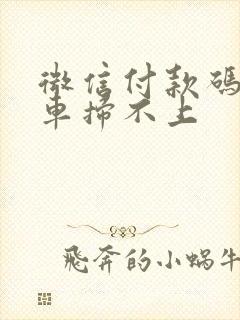 微信付款碼
車掃不上
飛奔的小蝸牛